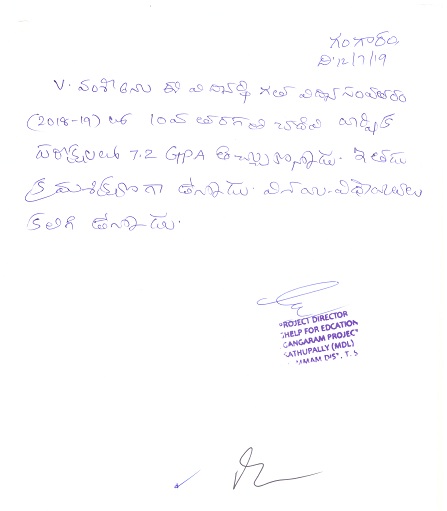 గంగారం,
ది:12/7/19
V. వంశీ అను ఈ విద్యార్థి గత విద్యా సంవత్సరం
(2018-19) లో 10వ తరగతి చదివి వార్షిక
పరీక్షలలో 7.2 GPA తెచ్చుకున్నాడు. ఇతడు
క్రమశిక్షణగా ఉన్నాడు. వినయ-విధేయతలు
కలిగి ఉన్నాడు.
PROJECT DIRECTOR
HELP FOR EDCATION
GANGARAM PROJEC
SATHUPALLY (MDL)
DIST. T.S